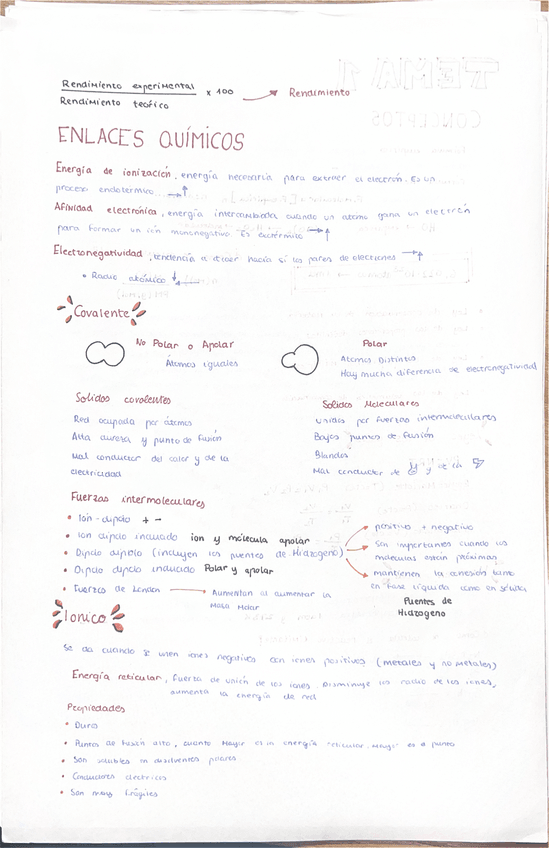 Rendimiento experimental x 100 Rendimiento
Rendimiento teórico
ENLACES QUÍMICOS
Energía de ionización, energía necesaria para extraer el electrón. Es un
proceso endotérmico
Afinidad electrónica, energía intercambiada cuando un átomo gana un electrón
para formar un ión mononegativo. Es exotérmico
Electronegatividad, tendencia a atraer hacia sí los pares de electrones
• Radio atómico
Covalente
No Polar o Apolar
Átomos iguales
Polar
Átomos Distintos
Hay mucha diferencia de electronegatividad
Solidos covalentes
Red ocupada por átomos
Alta dureza y punto de fusión
Mal conductor del calor y de la
electricidad
Solidos Moleculares
Unidos por fuerzas intermoleculares
Bajos puntos de fusión
Blandos
Mal conductor de y de la
Fuerzas intermoleculares
• Ion-dipolo + -
• Ion dipolo inducido ion y molécula apolar
• Dipolo dipolo (incluyen los puentes de Hidrogeno)
• Dipolo dipolo inducido Polar y apolar
• Fuerzas de London
Aumentan al aumentar la
Masa Molar
positivo + negativo
Son importantes cuando las
moléculas están próximas
mantienen la cohesión tanto
en fase líquida como en sólida
Puentes de
Hidrogeno
Ionico
Se da cuando se unen iones negativos con iones positivos (metales y no metales)
Energía reticular, fuerza de unión de los iones. Disminuye los radio de los iones,
aumenta la energía de red
Propiedades
• Duros
• Puntos de fusión alto, cuanto mayor es la energía reticular, mayor es el punto
• Son solubles en disolventes polares
• Conductores electricos
• Son muy frágiles